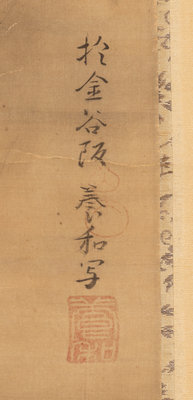 於金谷阪養和写